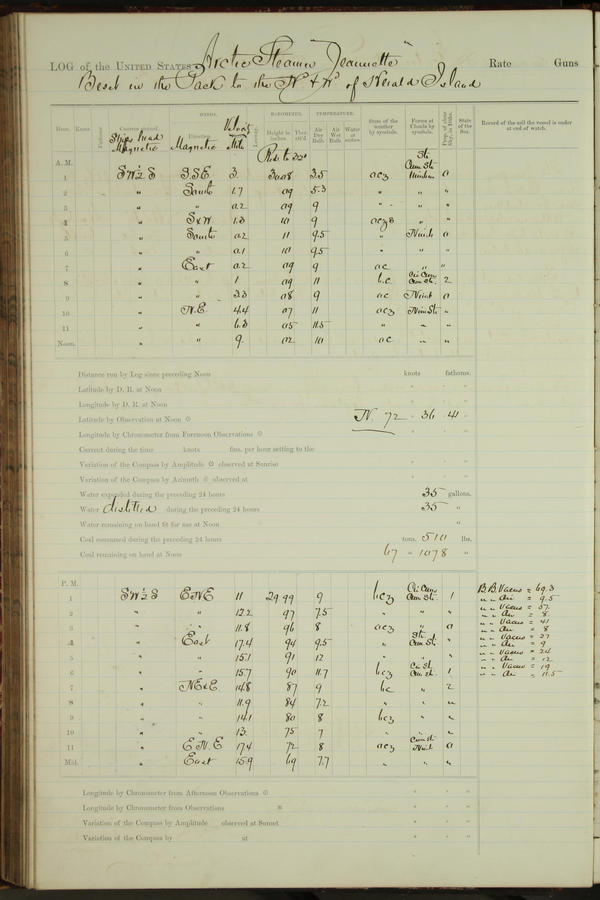 LOG of the UNITED STATES Arctic Steamer "Jeannette" Rate Guns
Beset in the Pack to the N & W of Herald Island
WINDS. BAROMETER. TEMPERATURE.
Hour. Knots. Courses steered Ships head Magnetic Direction Magnetic Velocity Mils Leeway. Height in inches Ther. att'd. Air Dry Bulb. Air Wet Bulb. Water at surface. State of the weather by symbols. Forms of Clouds by symbols. Prop. of clear Sky, in 10ths. State of the Sea. Record of the sail the vessel is under at end of watch.
A. M.
1 SW½S SSE 3. 30.08 3.5 ocz 0
2 " South 1.7 09 5.3 " " "
3 " " 0.2 09 9 " " "
4 " SxW 1.3 10 9 " "
5 " South 0.2 11 9.5 " Nimb 0
6 " " 0.1 10 9.5 " " "
7 " East 0.2 09 9 oc " "
8 " " 1 09 11 b.c. Cir Cum Cum St. 2
9 " " 3.3 08 9 oc Nimb 0
10 " N.E. 4.4 07 11 ocz Nim St. "
11 " " 6.3 05 11.5 " " "
Noon. " " 9. 02 10 oc " "
Distance run by Log since preceding Noon knots fathoms.
Latitude by D. R. at Noon
Longitude by D. R. at Noon
Latitude by Observation at Noon N. 72 36 41
Longitude by Chronometer from Forenoon Observations
Current during the time knots fms. per hour setting to the
Variation of the Compass by Amplitude observed at Sunrise
Variation of the Compass by Azimuth observed at
Water expended during the preceding 24 hours 35 gallons.
Water distilled during the preceding 24 hours 35 "
Water remaining on hand fit for use at Noon "
Coal consumed during the preceding 24 hours tons. 510 lbs.
Coal remaining on hand at Noon 67 " 1078 "
P. M.
1 SW½S ENE 11 29 99 9 bcz Cir Cum Cum St. 1
2 " " 12.2 97 7.5 " " "
3 " " 11.8 96 8 ocz " 0
4 " East 17.4 94 9.5 " St. Cum St. "
5 " " 15.1 91 12 " " "
6 " " 15.7 90 11.7 bcz 1
7 " NExE 14.8 87 9 bc " 2
8 " " 11.9 84 7.2 " " "
9 " " 14.1 80 8 bcz " "
10 " " 13. 75 7 " " "
11 " E.N.E 17.4 72 8 ocz Cum St. Nimb 0
Mid. " East 15.9 69 7.7 " " "
B.B. Vacuo = 69.3
" " Air = 9.5
" " Vacuo = 57.
" " Air = 8
" " Vacuo = 41
" " Air = 8
" " Vacuo = 27
" " Air = 9
" " Vacuo = 24
" " Air = 12
" " Vacuo = 19
" " Air = 11.5
Longitude by Chronometer from Afternoon Observations
Longitude by Chronometer from Observations
Variation of the Compass by Amplitude observed at Sunset
Variation of the Compass by at